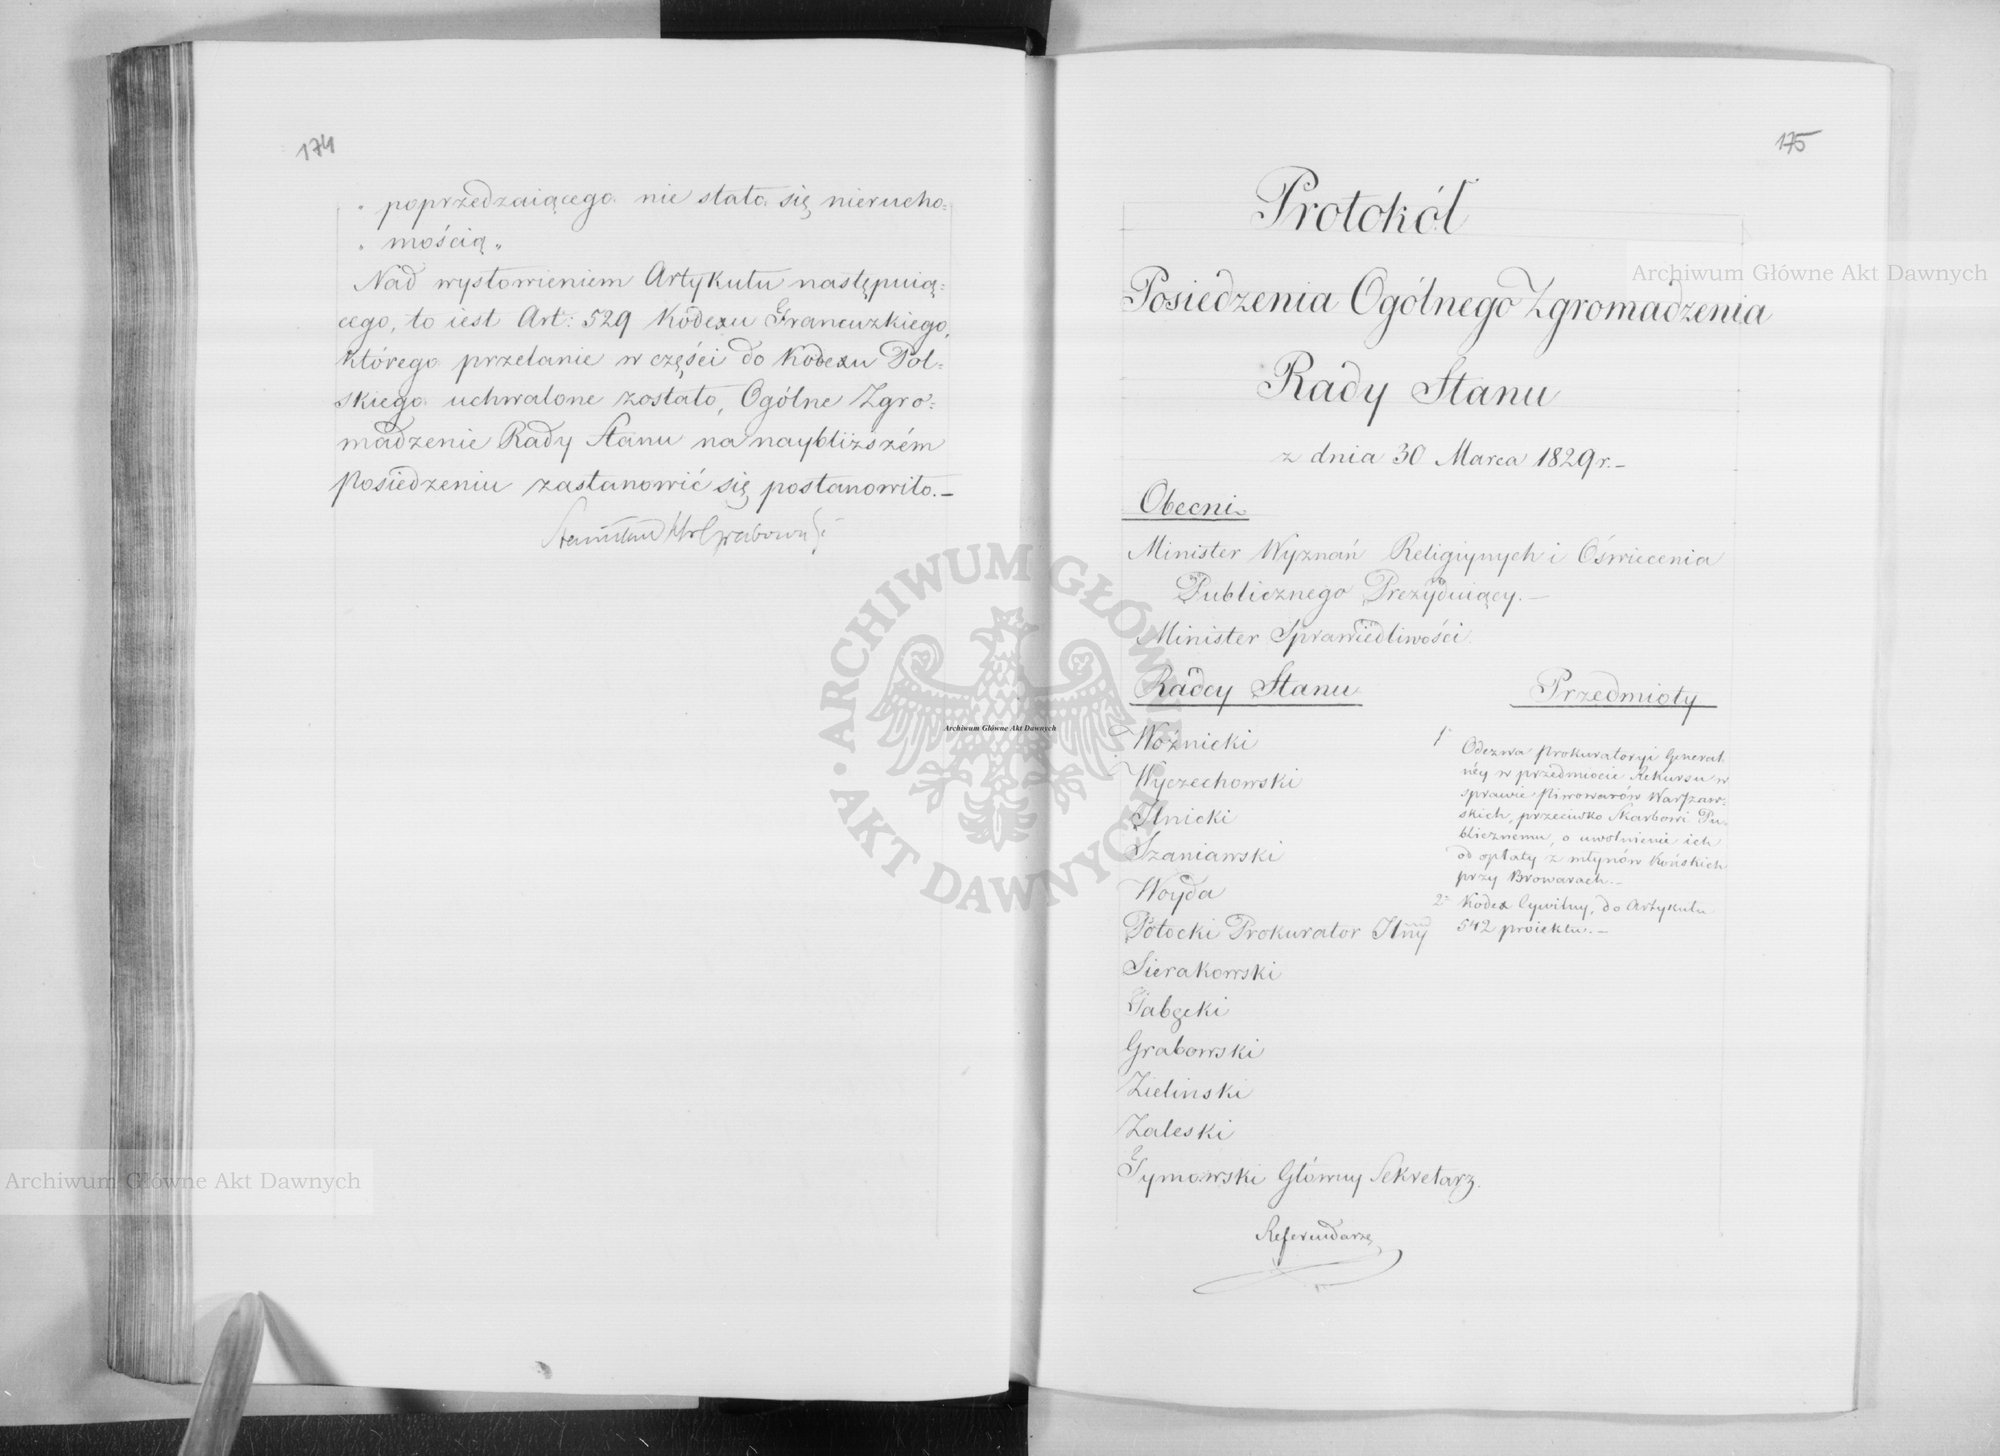 174
„ poprzedzaiącego nie stało się nierucho=
„ mością „
Nad wysłowieniem Artykułu następuią=
cego, to iest Art: 529 Kodexu Francuzkiego,
którego przelanie w części do Kodexu Pol=
skiego uchwalone zostało, Ogólne Zgro=
madzenie Rady Stanu na naybliższém
Posiedzeniu zastanowić się postanowiło.—
Stanisław Grabowski
175
Protokół
Posiedzenia Ogólnego Zgromadzenia
Rady Stanu
z dnia 30 Marca 1829 r.—
Obecni
Minister Wyznań Religiynych i Oświecenia
Publicznego Prezyduiący.—
Minister Sprawiedliwości
Radcy Stanu
Woźnicki
Wyczechowski
Ilnicki
Szaniawski
Woyda
Potocki Prokurator Jlny
Sierakowski
Tabęcki
Grabowski
Zieliński
Zaleski
Tymowski Główny Sekretarz.
Referendarze
Przedmioty
1° Odezwa Prokuratoryi General=
néy w przedmiocie Rekursu w
sprawie Piwowarów Warszaw=
skich, przeciwko Skarbowi Pu=
blicznemu, o uwolnienie ich
od opłaty z młynów Końskich
przy Browarach.—
2° Kodex Cywilny, do Artykułu
542 proiektu.—
Archiwum Główne Akt Dawnych
ARCHIWUM GŁÓWNE · AKT DAWNYCH ·
Archiwum Główne Akt Dawnych
Archiwum Główne Akt Dawnych